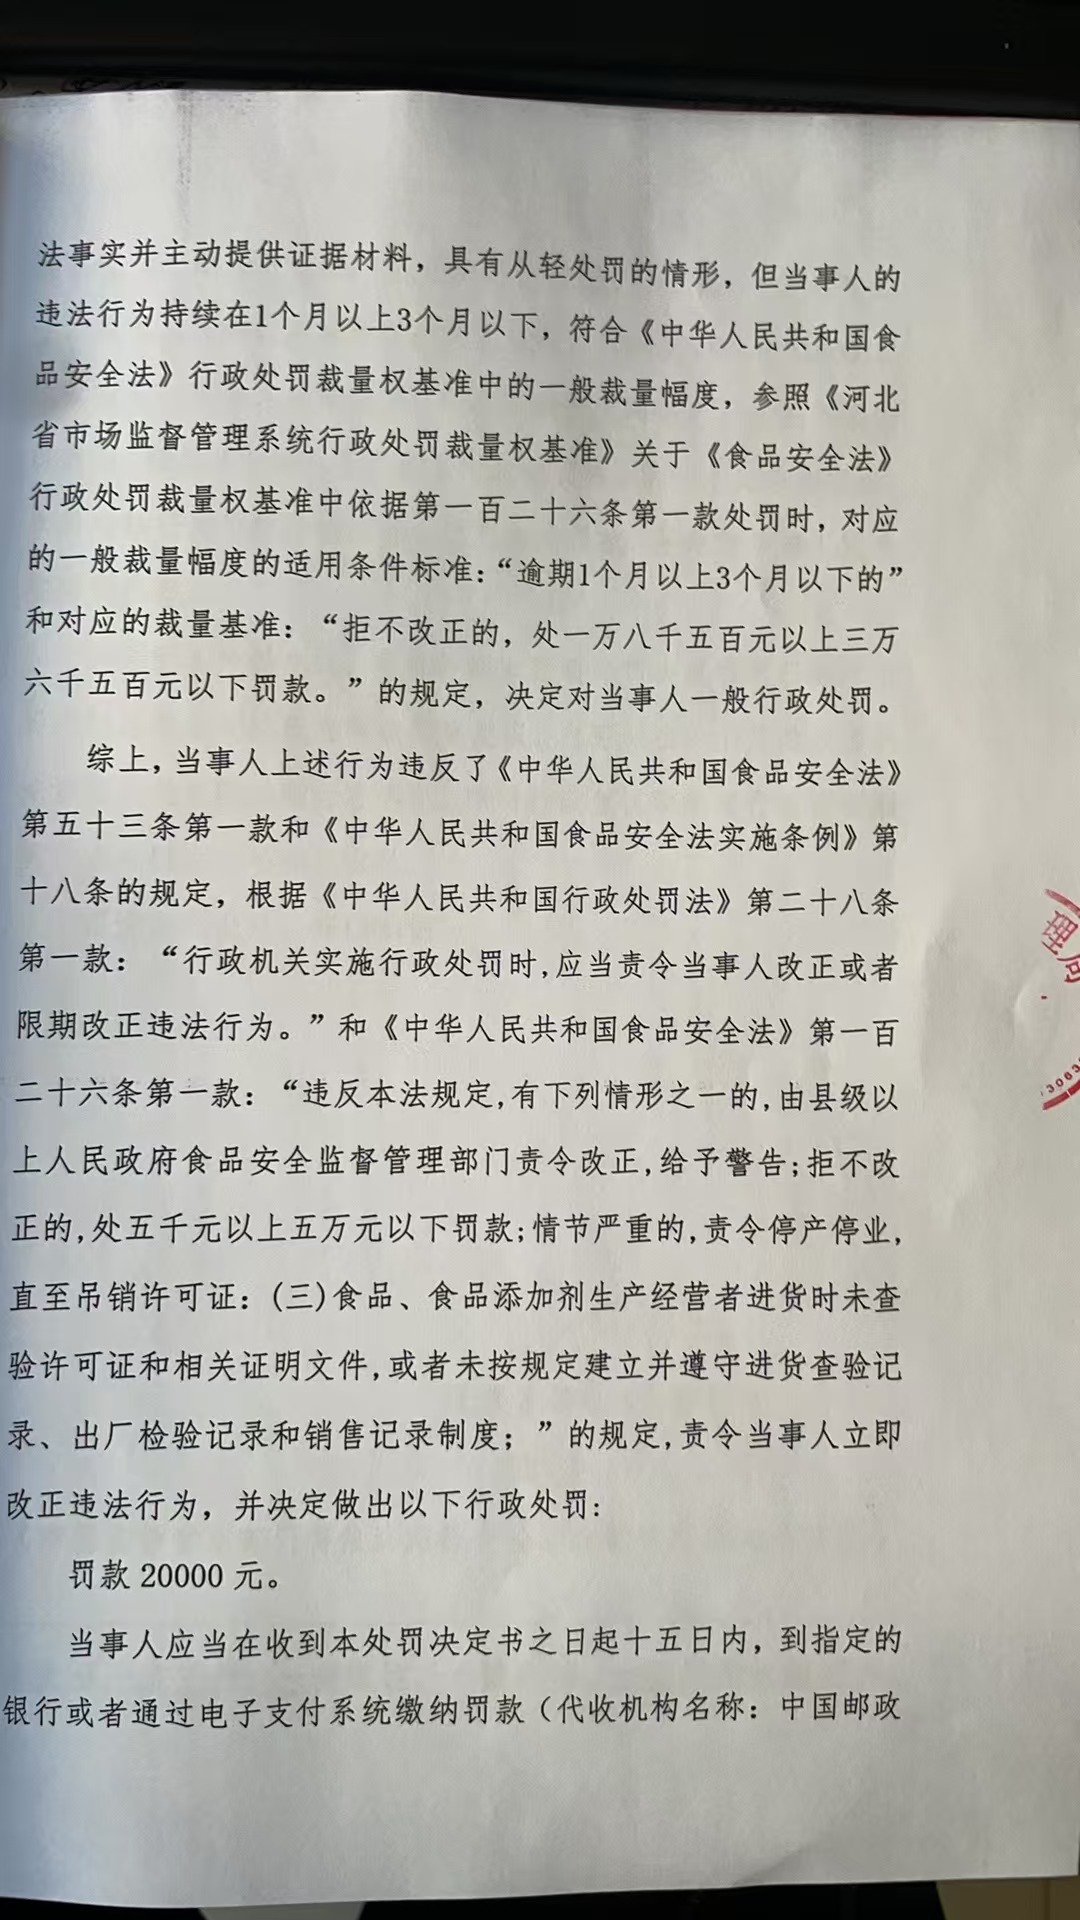 法事实并主动提供证据材料，具有从轻处罚的情形，但当事人的
违法行为持续在1个月以上3个月以下，符合《中华人民共和国食
品安全法》行政处罚裁量权基准中的一般裁量幅度，参照《河北
省市场监督管理系统行政处罚裁量权基准》关于《食品安全法》
行政处罚裁量权基准中依据第一百二十六条第一款处罚时，对应
的一般裁量幅度的适用条件标准：“逾期1个月以上3个月以下的”
和对应的裁量基准：“拒不改正的，处一万八千五百元以上三万
六千五百元以下罚款。”的规定，决定对当事人一般行政处罚。
综上，当事人上述行为违反了《中华人民共和国食品安全法》
第五十三条第一款和《中华人民共和国食品安全法实施条例》第
十八条的规定，根据《中华人民共和国行政处罚法》第二十八条
第一款：“行政机关实施行政处罚时,应当责令当事人改正或者
限期改正违法行为。”和《中华人民共和国食品安全法》第一百
二十六条第一款：“违反本法规定,有下列情形之一的,由县级以
上人民政府食品安全监督管理部门责令改正,给予警告;拒不改
正的,处五千元以上五万元以下罚款;情节严重的,责令停产停业,
直至吊销许可证：(三)食品、食品添加剂生产经营者进货时未查
验许可证和相关证明文件,或者未按规定建立并遵守进货查验记
录、出厂检验记录和销售记录制度；”的规定,责令当事人立即
改正违法行为，并决定做出以下行政处罚:
罚款 20000 元。
当事人应当在收到本处罚决定书之日起十五日内，到指定的
银行或者通过电子支付系统缴纳罚款（代收机构名称：中国邮政
理局
3063